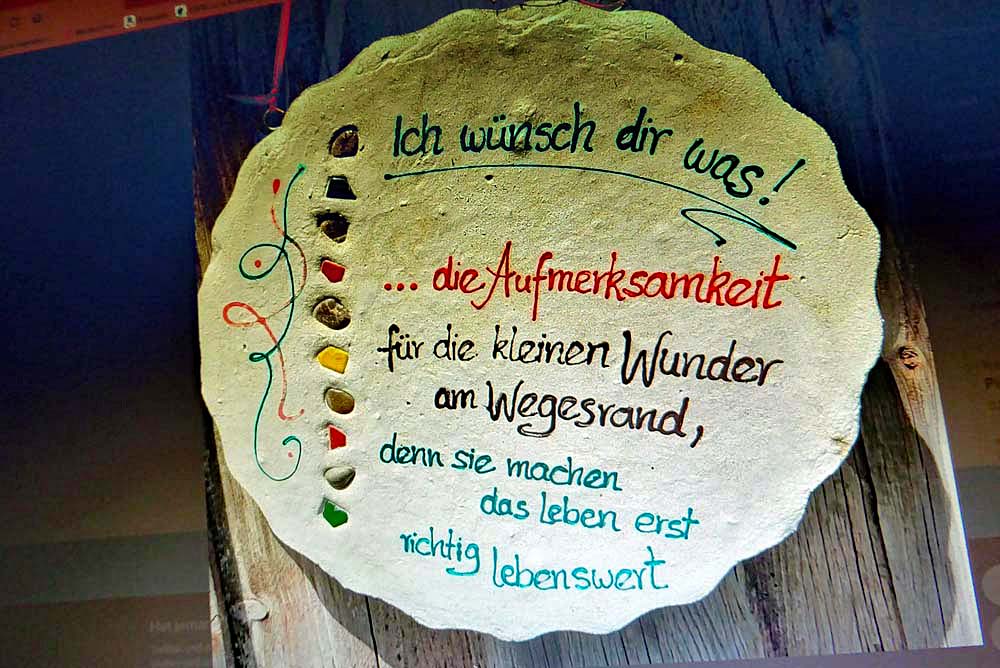 Ich wünsch dir was!
... die Aufmerksamkeit
für die kleinen Wunder
am Wegesrand,
denn sie machen
das leben erst
richtig lebenswert.